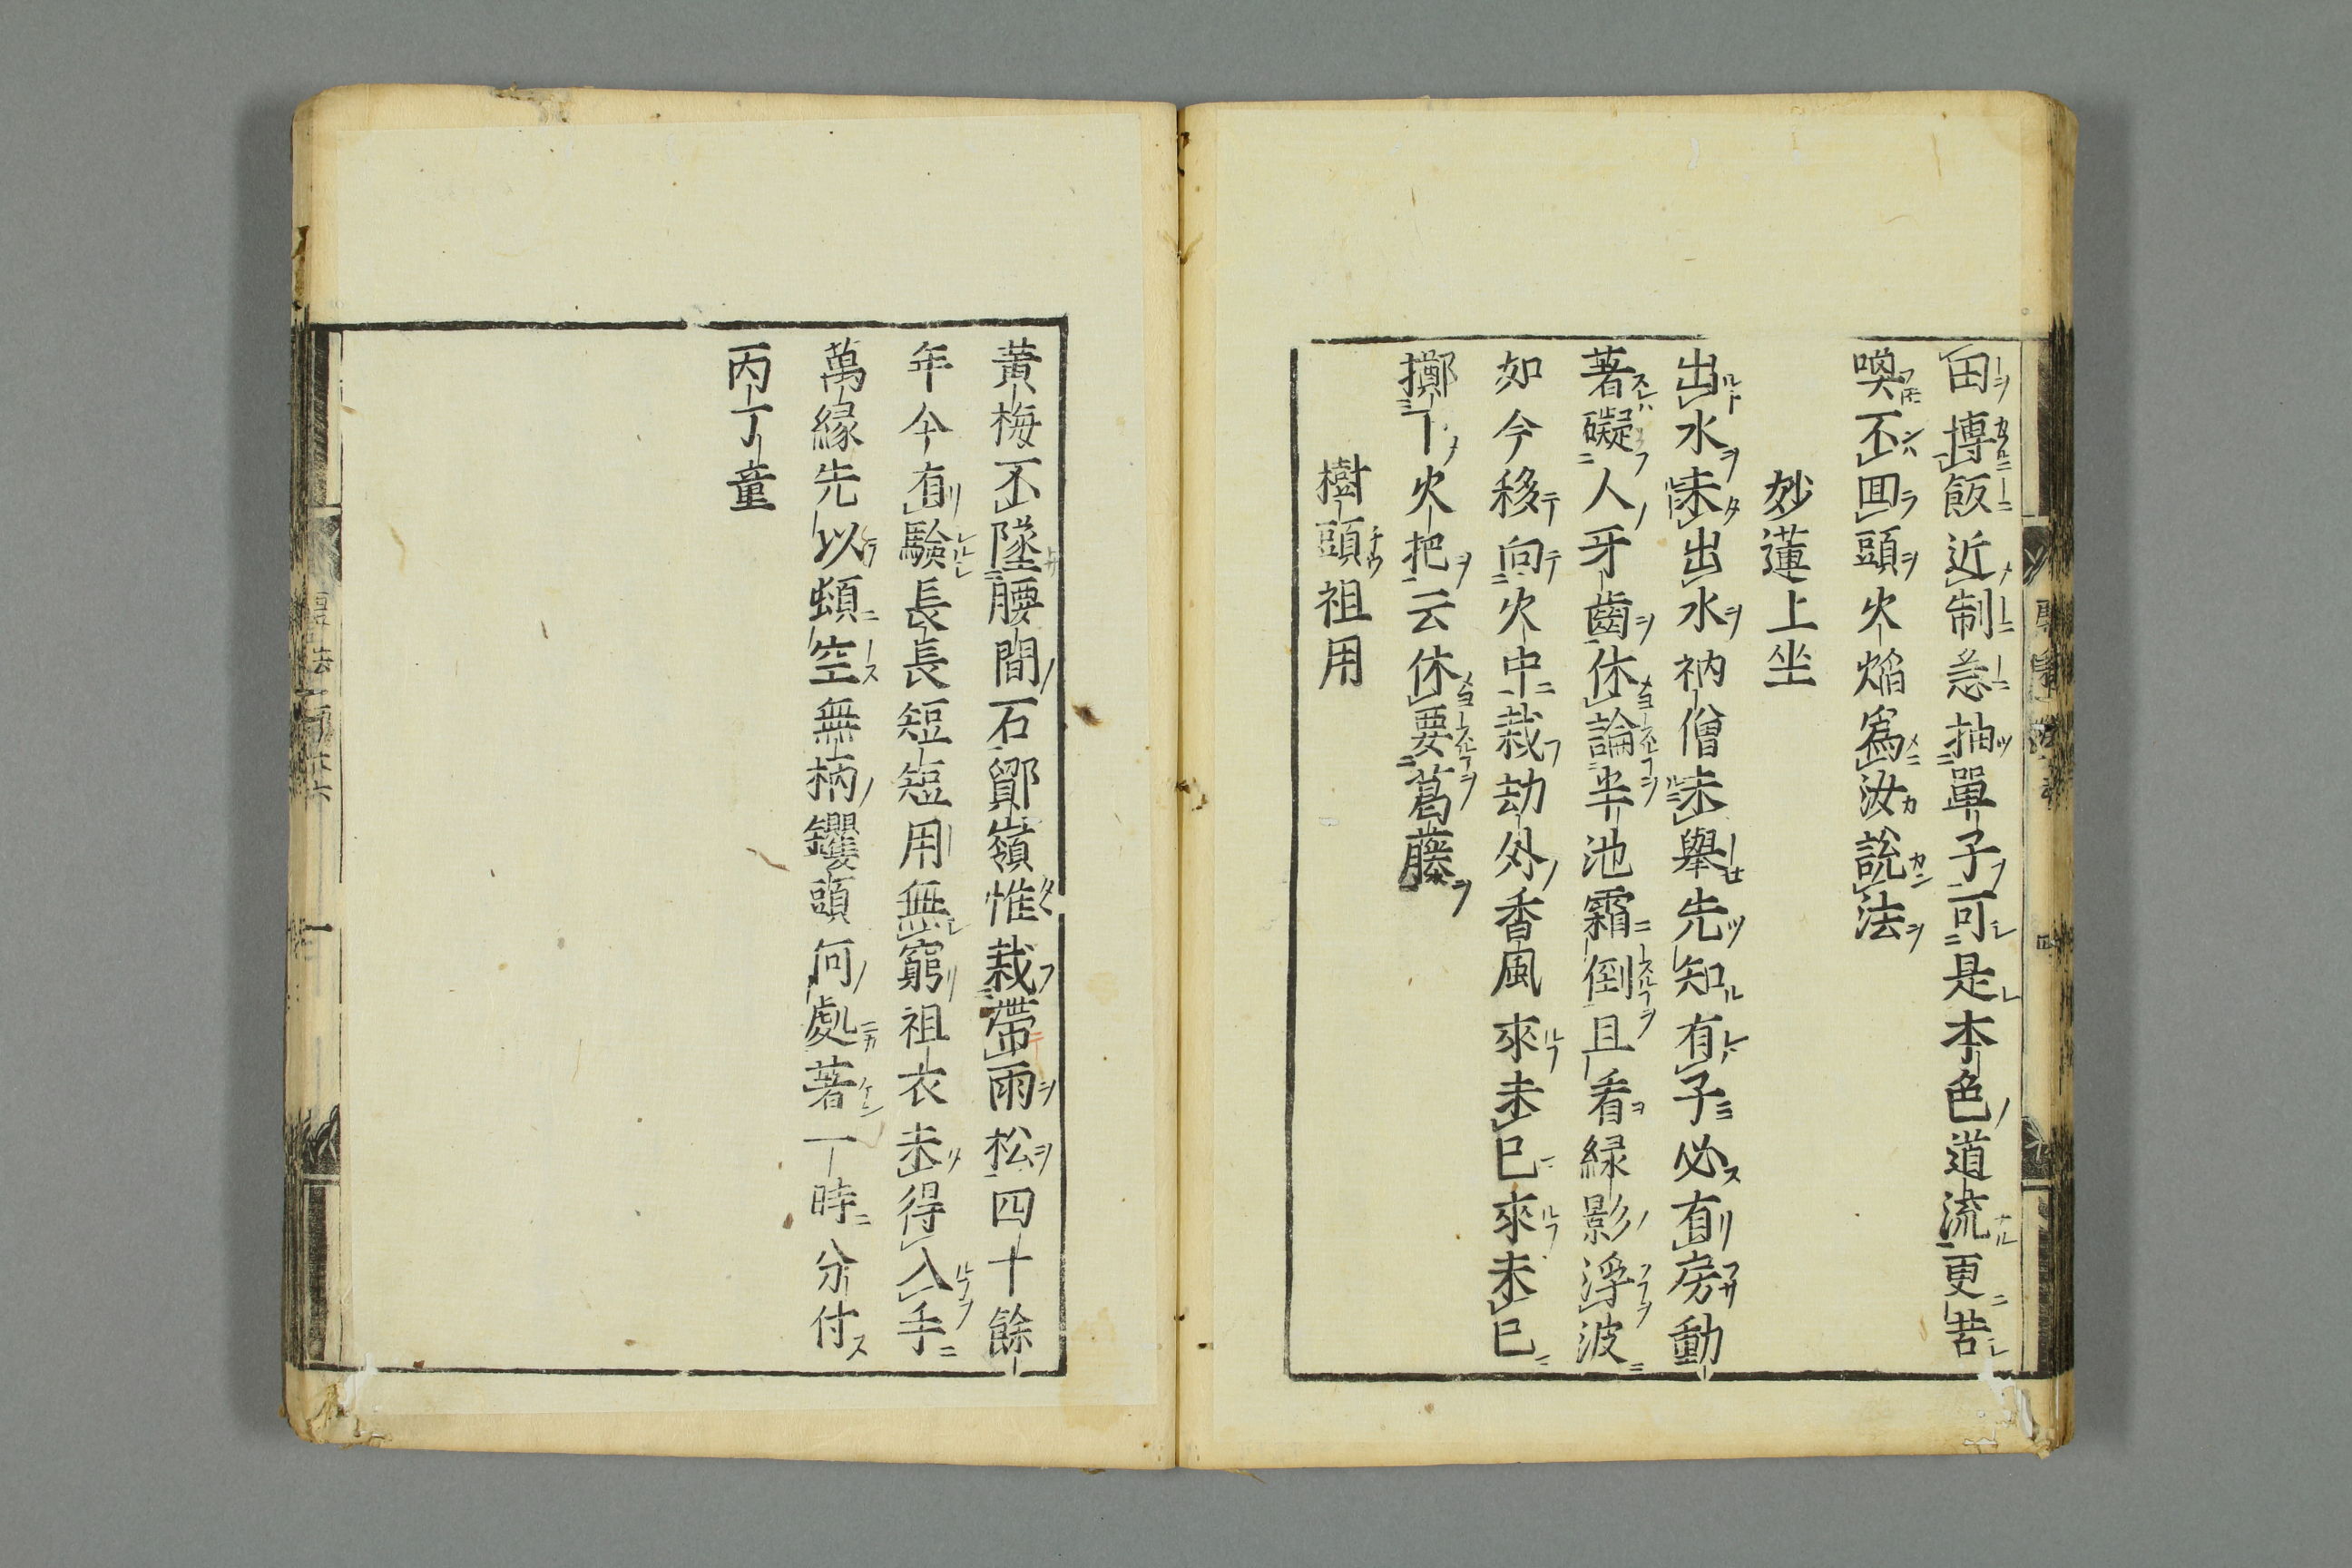 田博飯近制急抽單子可是本色道流更苦
喚不回頭火焔爲汝說法
妙蓮上坐
出水未出水衲僧未舉先知有子必有房動
著礙人牙齒休論半池霜倒且看緑影浮波
如今移向火中栽劫外香風來未已來未已
擲下火把云休要葛藤
樹頭祖用
黃梅不墜腰間石鄮嶺惟栽帶雨松四十餘
年今有驗長長短短用無窮祖衣未得入手
萬縁先以頓空無柄钁頭何處著一時分付
丙丁童